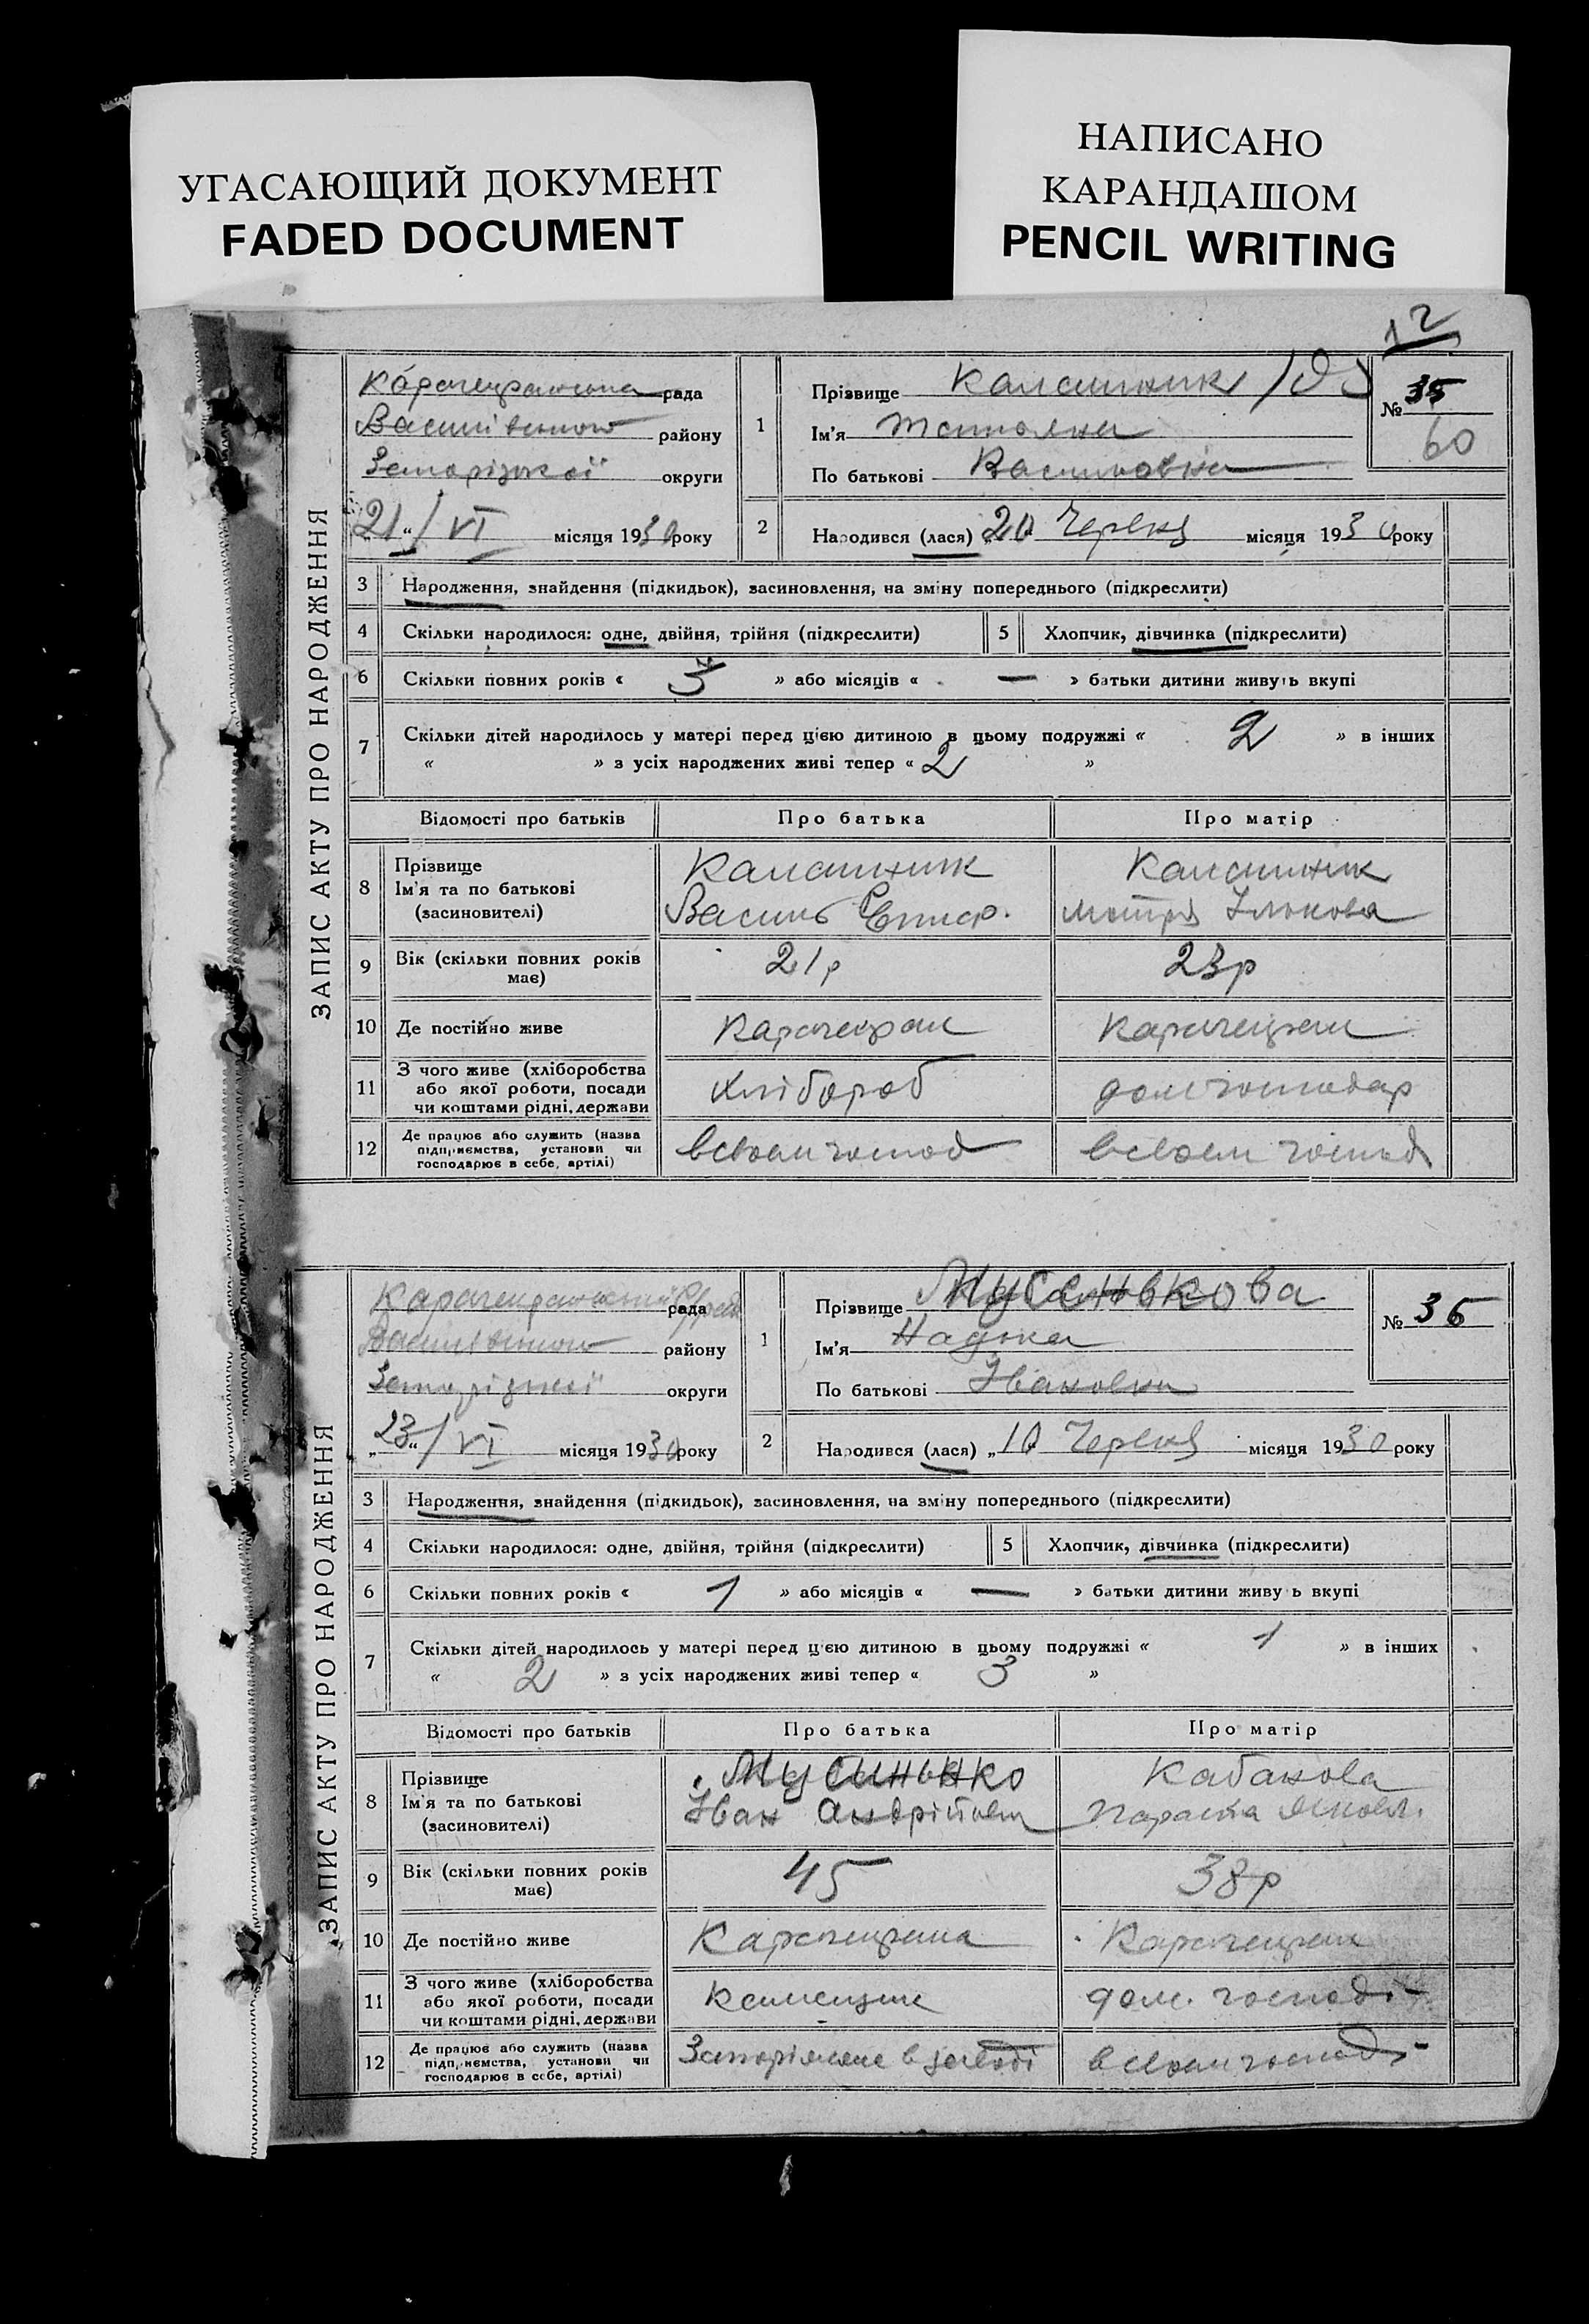 УГАСАЮЩИЙ ДОКУМЕНТ
FADED DOCUMENT
НАПИСАНО
КАРАНДАШОМ
PENCIL WRITING
12
ЗАПИС АКТУ ПРО НАРОДЖЕННЯ
рада
району
Запорізької округи
„21“/VI місяця 1930 року
1
Прізвище Калашник
Ім'я Татьяна
По батькові Васильовна
№ 35
60
2
Народився (лася) „20 Червня місяця 1930 року
3 Народження, знайдення (підкидьок), засиновлення, на зміну попереднього (підкреслити)
4 Скільки народилося: одне, двійня, трійня (підкреслити) 5 Хлопчик, дівчинка (підкреслити)
6 Скільки повних років « » або місяців « — » батьки дитини живуть вкупі
7 Скільки дітей народилось у матері перед цією дитиною в цьому подружжі « 2 » в інших
« » з усіх народжених живі тепер « 2 »
Відомості про батьків Про батька Про матір
8 Прізвище
Ім'я та по батькові
(засиновителі)
Калашник
Василь
Калашник
Мотря
9 Вік (скільки повних років
має)
21р 23р
10 Де постійно живе Карачекрак Карачекрак
11 З чого живе (хліборобства
або якої роботи, посади
чи коштами рідні, держави
Хлібороб домгосподар
12 Де працює або служить (назва
підприємства, установи чи
господарює в себе, артілі)
в своем господ в своем господ
ЗАПИС АКТУ ПРО НАРОДЖЕННЯ
рада
району
Запорізької округи
„23“/VI місяця 1930 року
1
Прізвище Мусинькова
Ім'я
По батькові Івановна
№ 36
2
Народився (лася) „10 Червня місяця 1930 року
3 Народження, знайдення (підкидьок), засиновлення, на зміну попереднього (підкреслити)
4 Скільки народилося: одне, двійня, трійня (підкреслити) 5 Хлопчик, дівчинка (підкреслити)
6 Скільки повних років « 1 » або місяців « — » батьки дитини живу ь вкупі
7 Скільки дітей народилось у матері перед цією дитиною в цьому подружжі « 1 » в інших
« 2 » з усіх народжених живі тепер « 3 »
Відомості про батьків Про батька Про матір
8 Прізвище
Ім'я та по батькові
(засиновителі)
Мусинько
Іван Андрійов
Кабакова
Параска Яковл.
9 Вік (скільки повних років
має)
45 38р
10 Де постійно живе Карачекрак Карачекрак
11 З чого живе (хліборобства
або якої роботи, посади
чи коштами рідні, держави
дом. господ
12 Де працює або служить (назва
підприємства, установи чи
господарює в себе, артілі)
в заводі в своем господ